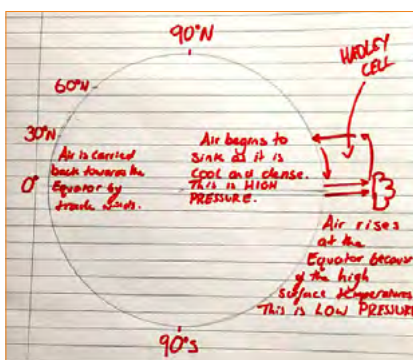 90°N
HADLEY
CELL
60°N
30°N
Air is carried
back towards the
Equator by
trade winds.
Air begins to
sink as it is
cool and dense.
This is HIGH
PRESSURE.
0°
Air rises
at the
Equator because
of the high
surface temperatures
This is LOW PRESSURE
90°S